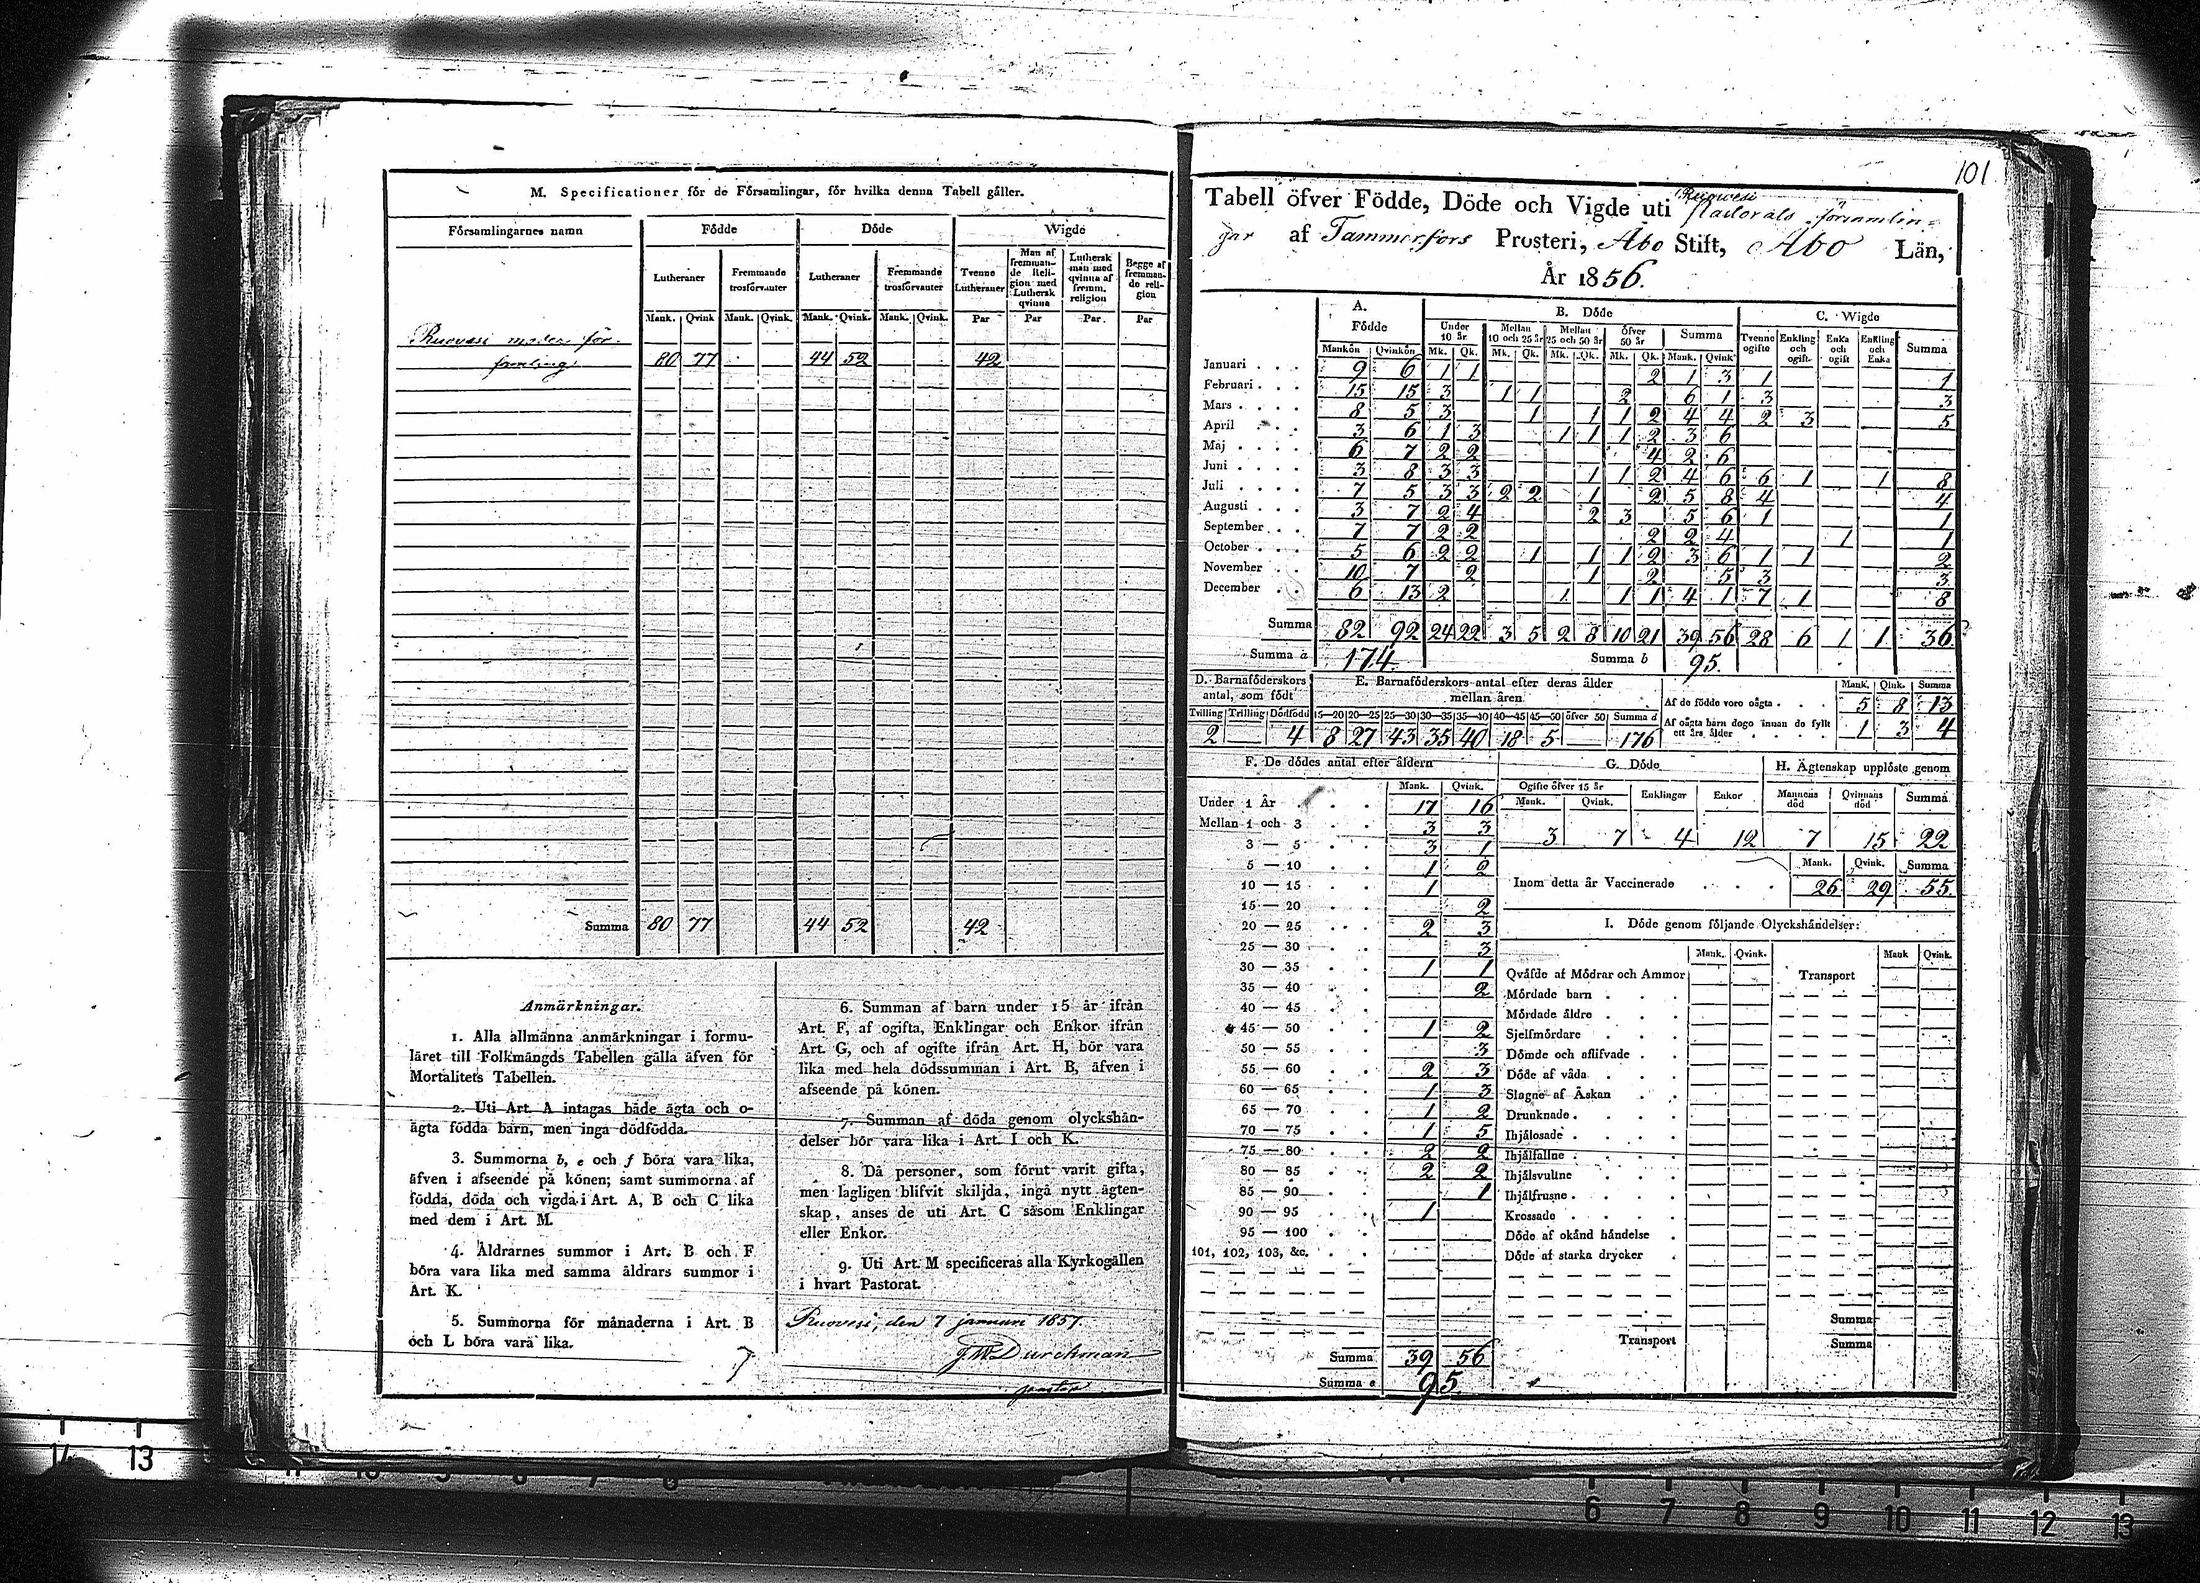 M. Specificationer för de Församlingar, för hvilka denna Tabell gäller.
Församlingarnes namn Födde Döde Wigde
Lutheraner Fremmande trosförvanter Lutheraner Fremmande trosförvanter Tvenne Lutheraner Man af fremmande Religion med Luthersk qvinna Luthersk man med qvinna af fremm. religion Begge af fremmande religion
Mank. Qvink Mank. Qvink. Mank. Qvink. Mank. Qvink. Par Par Par. Par
Ruovesi moder för-
samling 80 77 44 52 42
Summa 80 77 44 52 42
Anmärkningar.
1. Alla allmänna anmärkningar i formu-
läret till Folkmängds Tabellen gälla äfven för
Mortalitets Tabellen.
2. Uti Art. A intagas både ägta och o-
ägta födda barn, men inga dödfödda.
3. Summorna b, e och f böra vara lika,
äfven i afseende på könen; samt summorna af
födda, döda och vigda i Art. A, B och C lika
med dem i Art. M.
4. Åldrarnes summor i Art. B och F
böra vara lika med samma åldrars summor i
Art. K.
5. Summorna för månaderna i Art. B
och L böra vara lika.
6. Summan af barn under 15 år ifrån
Art. F, af ogifta, Enklingar och Enkor ifrån
Art. G, och af ogifte ifrån Art. H, bör vara
lika med hela dödssumman i Art. B, äfven i
afseende på könen.
7. Summan af döda genom olyckshän-
delser bör vara lika i Art. I och K.
8. Då personer, som förut varit gifta,
men lagligen blifvit skiljda, ingå nytt ägten-
skap, anses de uti Art. C såsom Enklingar
eller Enkor.
9. Uti Art. M specificeras alla Kyrkogällen
i hvart Pastorat.
Ruovesi, den 7 januari 1857.
Durchman
pastor
101
Tabell öfver Födde, Döde och Vigde uti Ruowesi Pastorats församlin-
gar af Tammerfors Prosteri, Åbo Stift, Åbo Län,
År 1856.
A. Födde B. Döde C. Wigde
Under 10 år Mellan 10 och 25 år Mellan 25 och 50 år Öfver 50 år Summa Tvenne ogifte Enkling och ogift Enka och ogift Enkling och Enka Summa
Mankön Qvinkön Mk. Qk. Mk. Qk. Mk. Qk. Mk. Qk. Mank. Qvink
Januari 9 6 1 1 2 1 3 1 1
Februari 15 15 3 1 1 2 6 1 3 3
Mars 8 5 3 1 1 1 2 4 4 2 3 5
April 3 6 1 3 1 1 1 2 3 6
Maj 6 7 2 2 4 2 6
Juni 3 8 3 3 1 1 2 4 6 6 1 1 8
Juli 7 5 3 3 2 2 1 2 5 8 4 4
Augusti 3 7 2 4 2 3 5 6 1 1
September 7 7 2 2 2 2 4 1 1
October 5 6 2 2 1 1 1 2 3 6 1 1 2
November 10 7 2 1 2 5 3 3
December 6 13 2 1 1 1 4 1 7 1 8
Summa 82 92 24 22 3 5 2 8 10 21 39 56 28 6 1 1 36
Summa a 174 Summa b 95.
D. Barnaföderskors antal, som födt
Tvilling Trilling Dödfödd
2 — 4
E. Barnaföderskors antal efter deras ålder mellan åren
15—20 20—25 25—30 30—35 35—40 40—45 45—50 öfver 50 Summa d
8 27 43 35 40 18 5 — 176
Mank. Qink. Summa
Af de födde voro oägta 5 8 13
Af oägta barn dogo innan de fyllt ett års ålder 1 3 4
F. De dödes antal efter åldern
Mank. Qvink.
Under 1 År 17 16
Mellan 1 och 3 3 3
3 — 5 3 1
5 — 10 1 2
10 — 15 1
15 — 20 2
20 — 25 2 3
25 — 30 3
30 — 35 1 1
35 — 40 2
40 — 45
45 — 50 1 2
50 — 55 3
55 — 60 2 3
60 — 65 1 3
65 — 70 1 2
70 — 75 1 5
75 — 80 2 2
80 — 85 2 2
85 — 90 1
90 — 95 1
95 — 100
101, 102, 103, &c.
Summa 39 56
Summa e 95.
G. Döde
Ogifte öfver 15 år Enklingar Enkor
Mank. Qvink.
3 7 4 12
H. Ägtenskap upplöste genom
Mannens död Qvinnans död Summa
7 15 22
Mank. Qvink. Summa
Inom detta år Vaccinerade 26 29 55.
I. Döde genom följande Olyckshändelser:
Mank. Qvink. Mank Qvink.
Qväfde af Mödrar och Ammor Transport
Mördade barn
Mördade äldre
Sjelfmördare
Dömde och aflifvade
Döde af våda
Slagne af Åskan
Drunknade
Ihjälosade
Ihjälfallne
Ihjälsvultne
Ihjälfrusne
Krossade
Döde af okänd händelse
Döde af starka drycker
Summa
Transport Summa